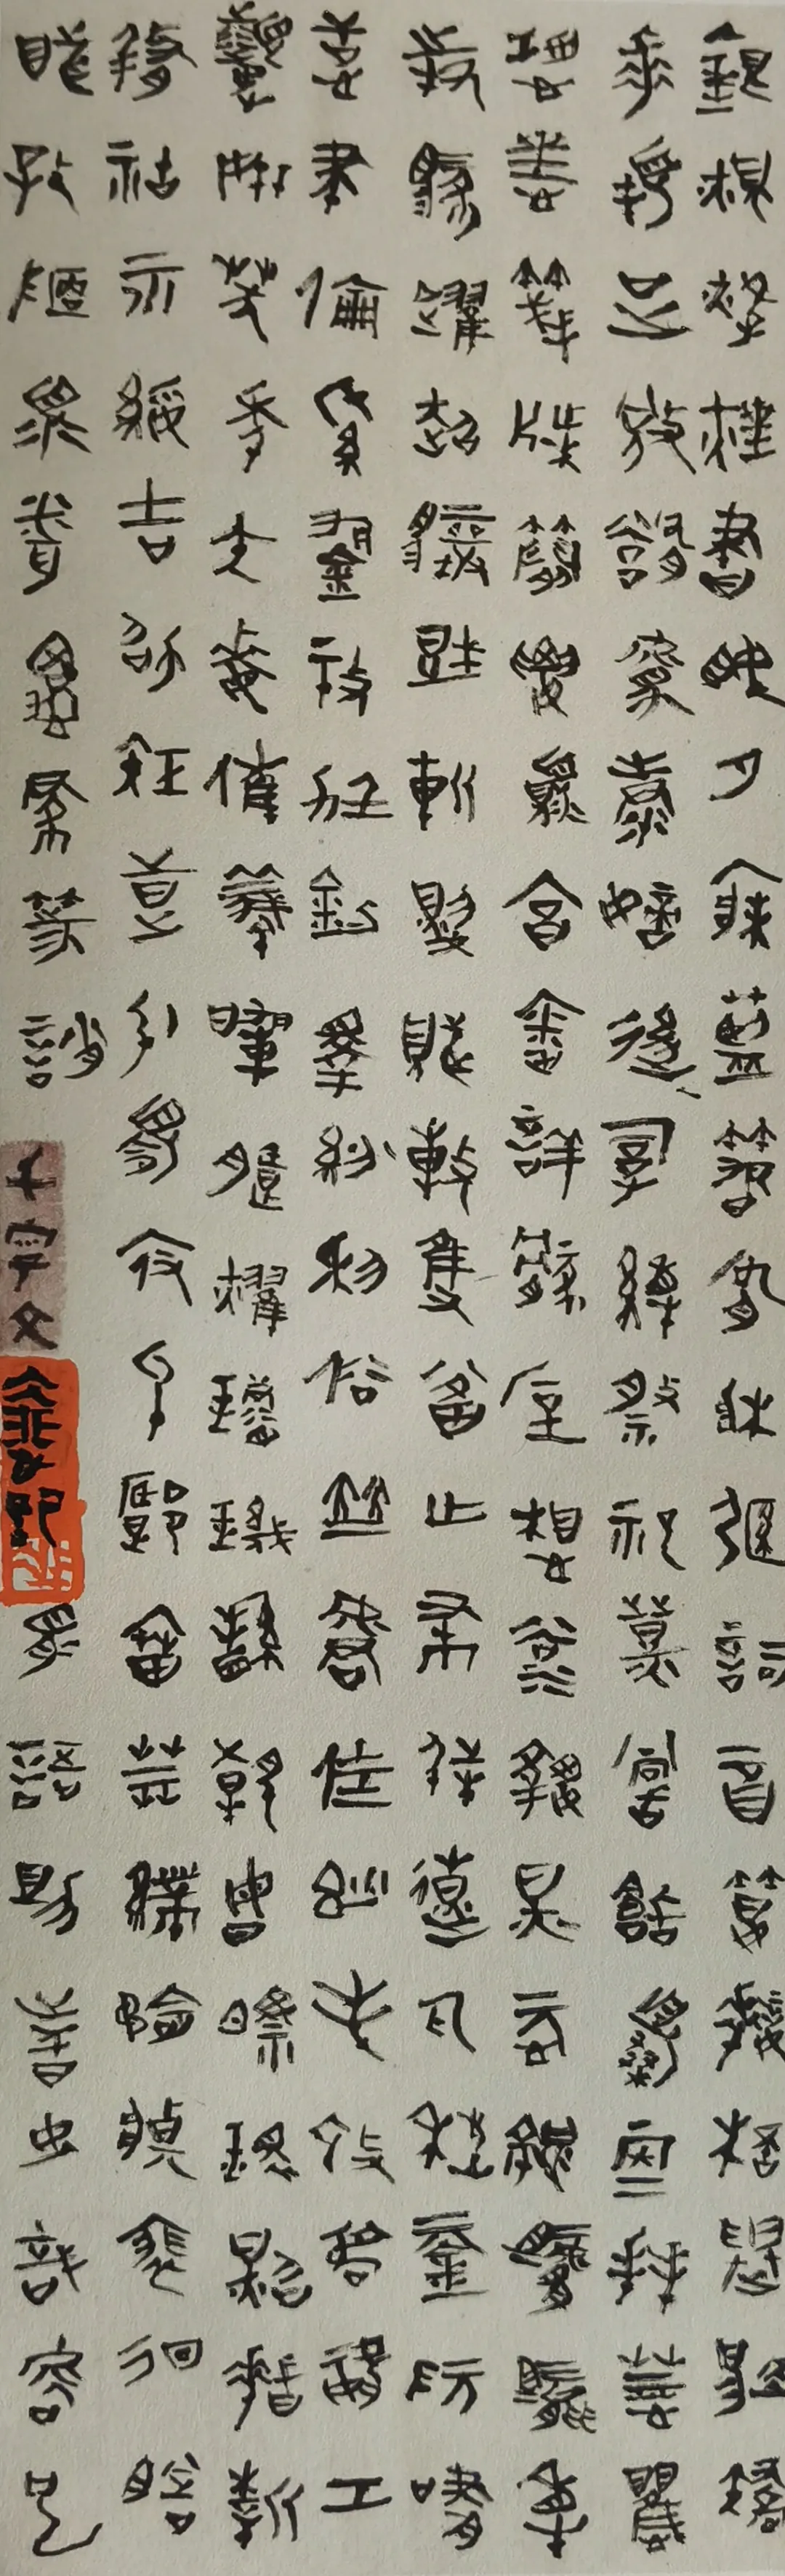 銀燭煒煌晝眠夕寐藍筍象床弦歌酒讌接杯舉觴矯
手頓足悅豫且康嫡後嗣續祭祀烝嘗稽顙再拜悚懼
恐惶箋牒簡要顧答審詳骸垢想浴執熱願涼驢騾犢
特駭躍超驤誅斬賊盜捕獲叛亡布射遼丸嵇琴阮嘯
恬筆倫紙鈞巧任釣釋紛利俗並皆佳妙毛施淑姿工
顰妍笑年矢每催曦暉朗曜璇璣懸斡晦魄環照指薪
修祜永綏吉劭矩步引領俯仰廊廟束帶矜莊徘徊瞻
眺孤陋寡聞愚蒙等誚
千字文
謂語助者焉哉乎也